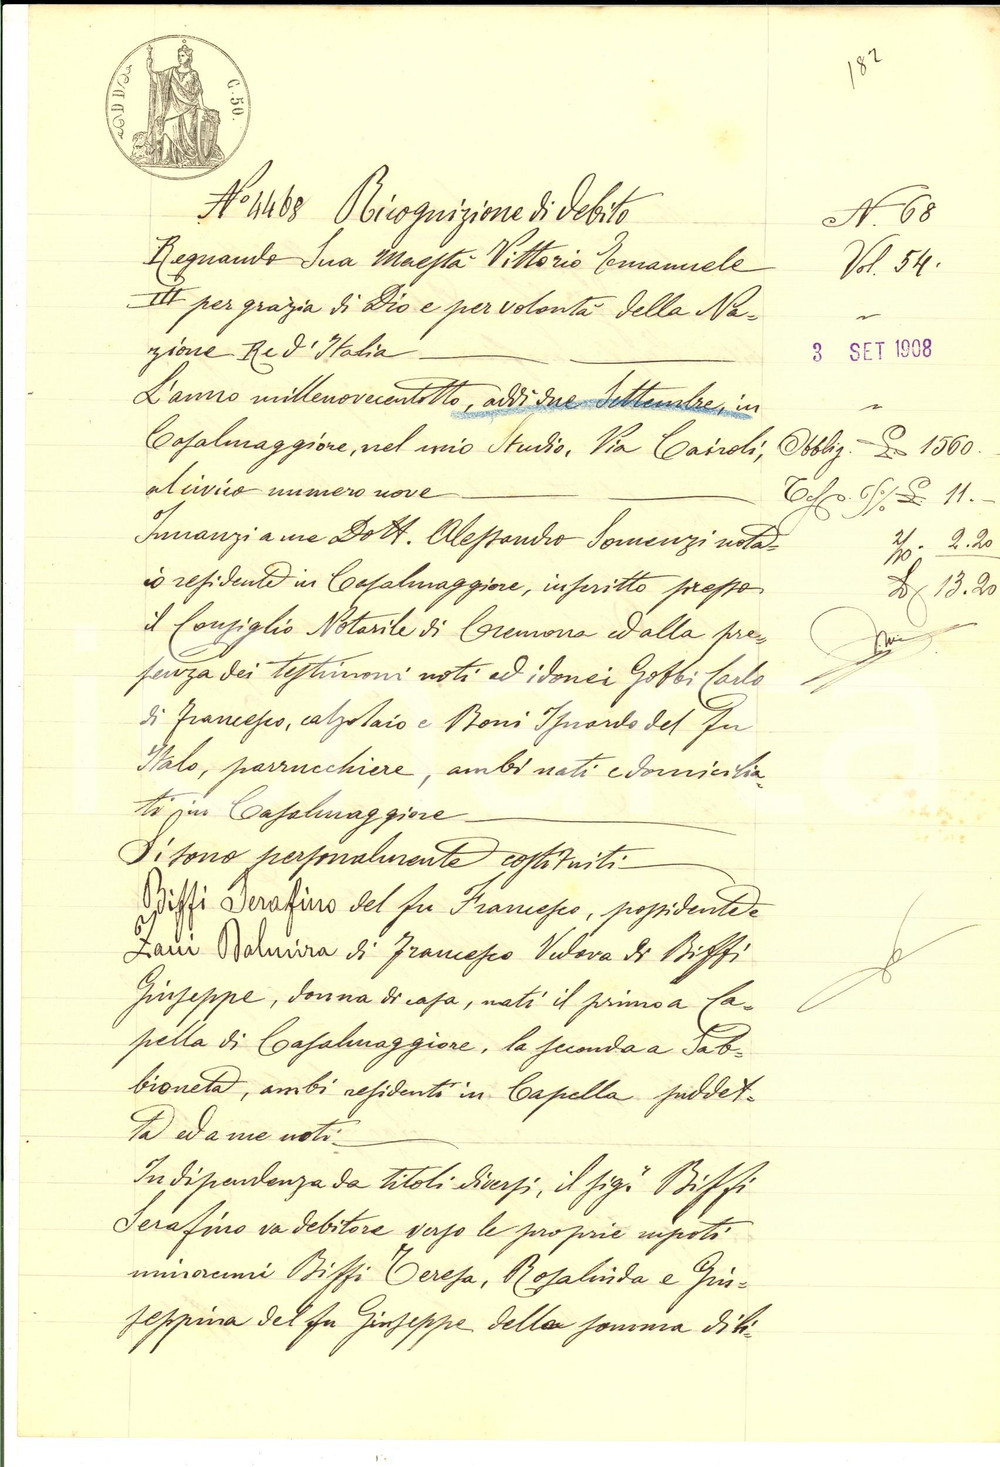 182
C. 50.
No 4468 Ricognizione di debito
N. 68
Regnando Sua Maestà Vittorio Emanuele
Vol. 54.
III per grazia di Dio e per volontà della Na=
zione Re d'Italia
3 SET 1908
L'anno millenovecentotto, addì due Settembre, in
Casalmaggiore, nel mio Studio, Via Cairoli,
Obblig. £ 1560.
al civico numero nove
£ 11.-
Innanzi a me Dott. Alessandro Somenzi nota=
2/10. 2.20
io residente in Casalmaggiore, inscritto presso
£ 13.20
il Consiglio Notarile di Cremona ed alla pre=
senza dei testimoni noti ed idonei Gobbi Carlo
di Francesco, calzolaio e Boni Isnardo del fu
Italo, parrucchiere, ambi nati e domicilia=
ti in Casalmaggiore
Si sono personalmente costituiti
Biffi Serafino del fu Francesco, possidente e
Zani Palmira di Francesco Vedova di Biffi
Giuseppe, donna di casa, nati il primo a Ca=
pella di Casalmaggiore, la seconda a Sab=
bioneta, ambi residenti in Capella suddet=
ta ed a me noti
In dipendenza da titoli diversi, il sigr Biffi
Serafino va debitore verso le proprie nipoti
minorenni Biffi Teresa, Rosalinda e Giu=
seppina del fu Giuseppe della somma di li=